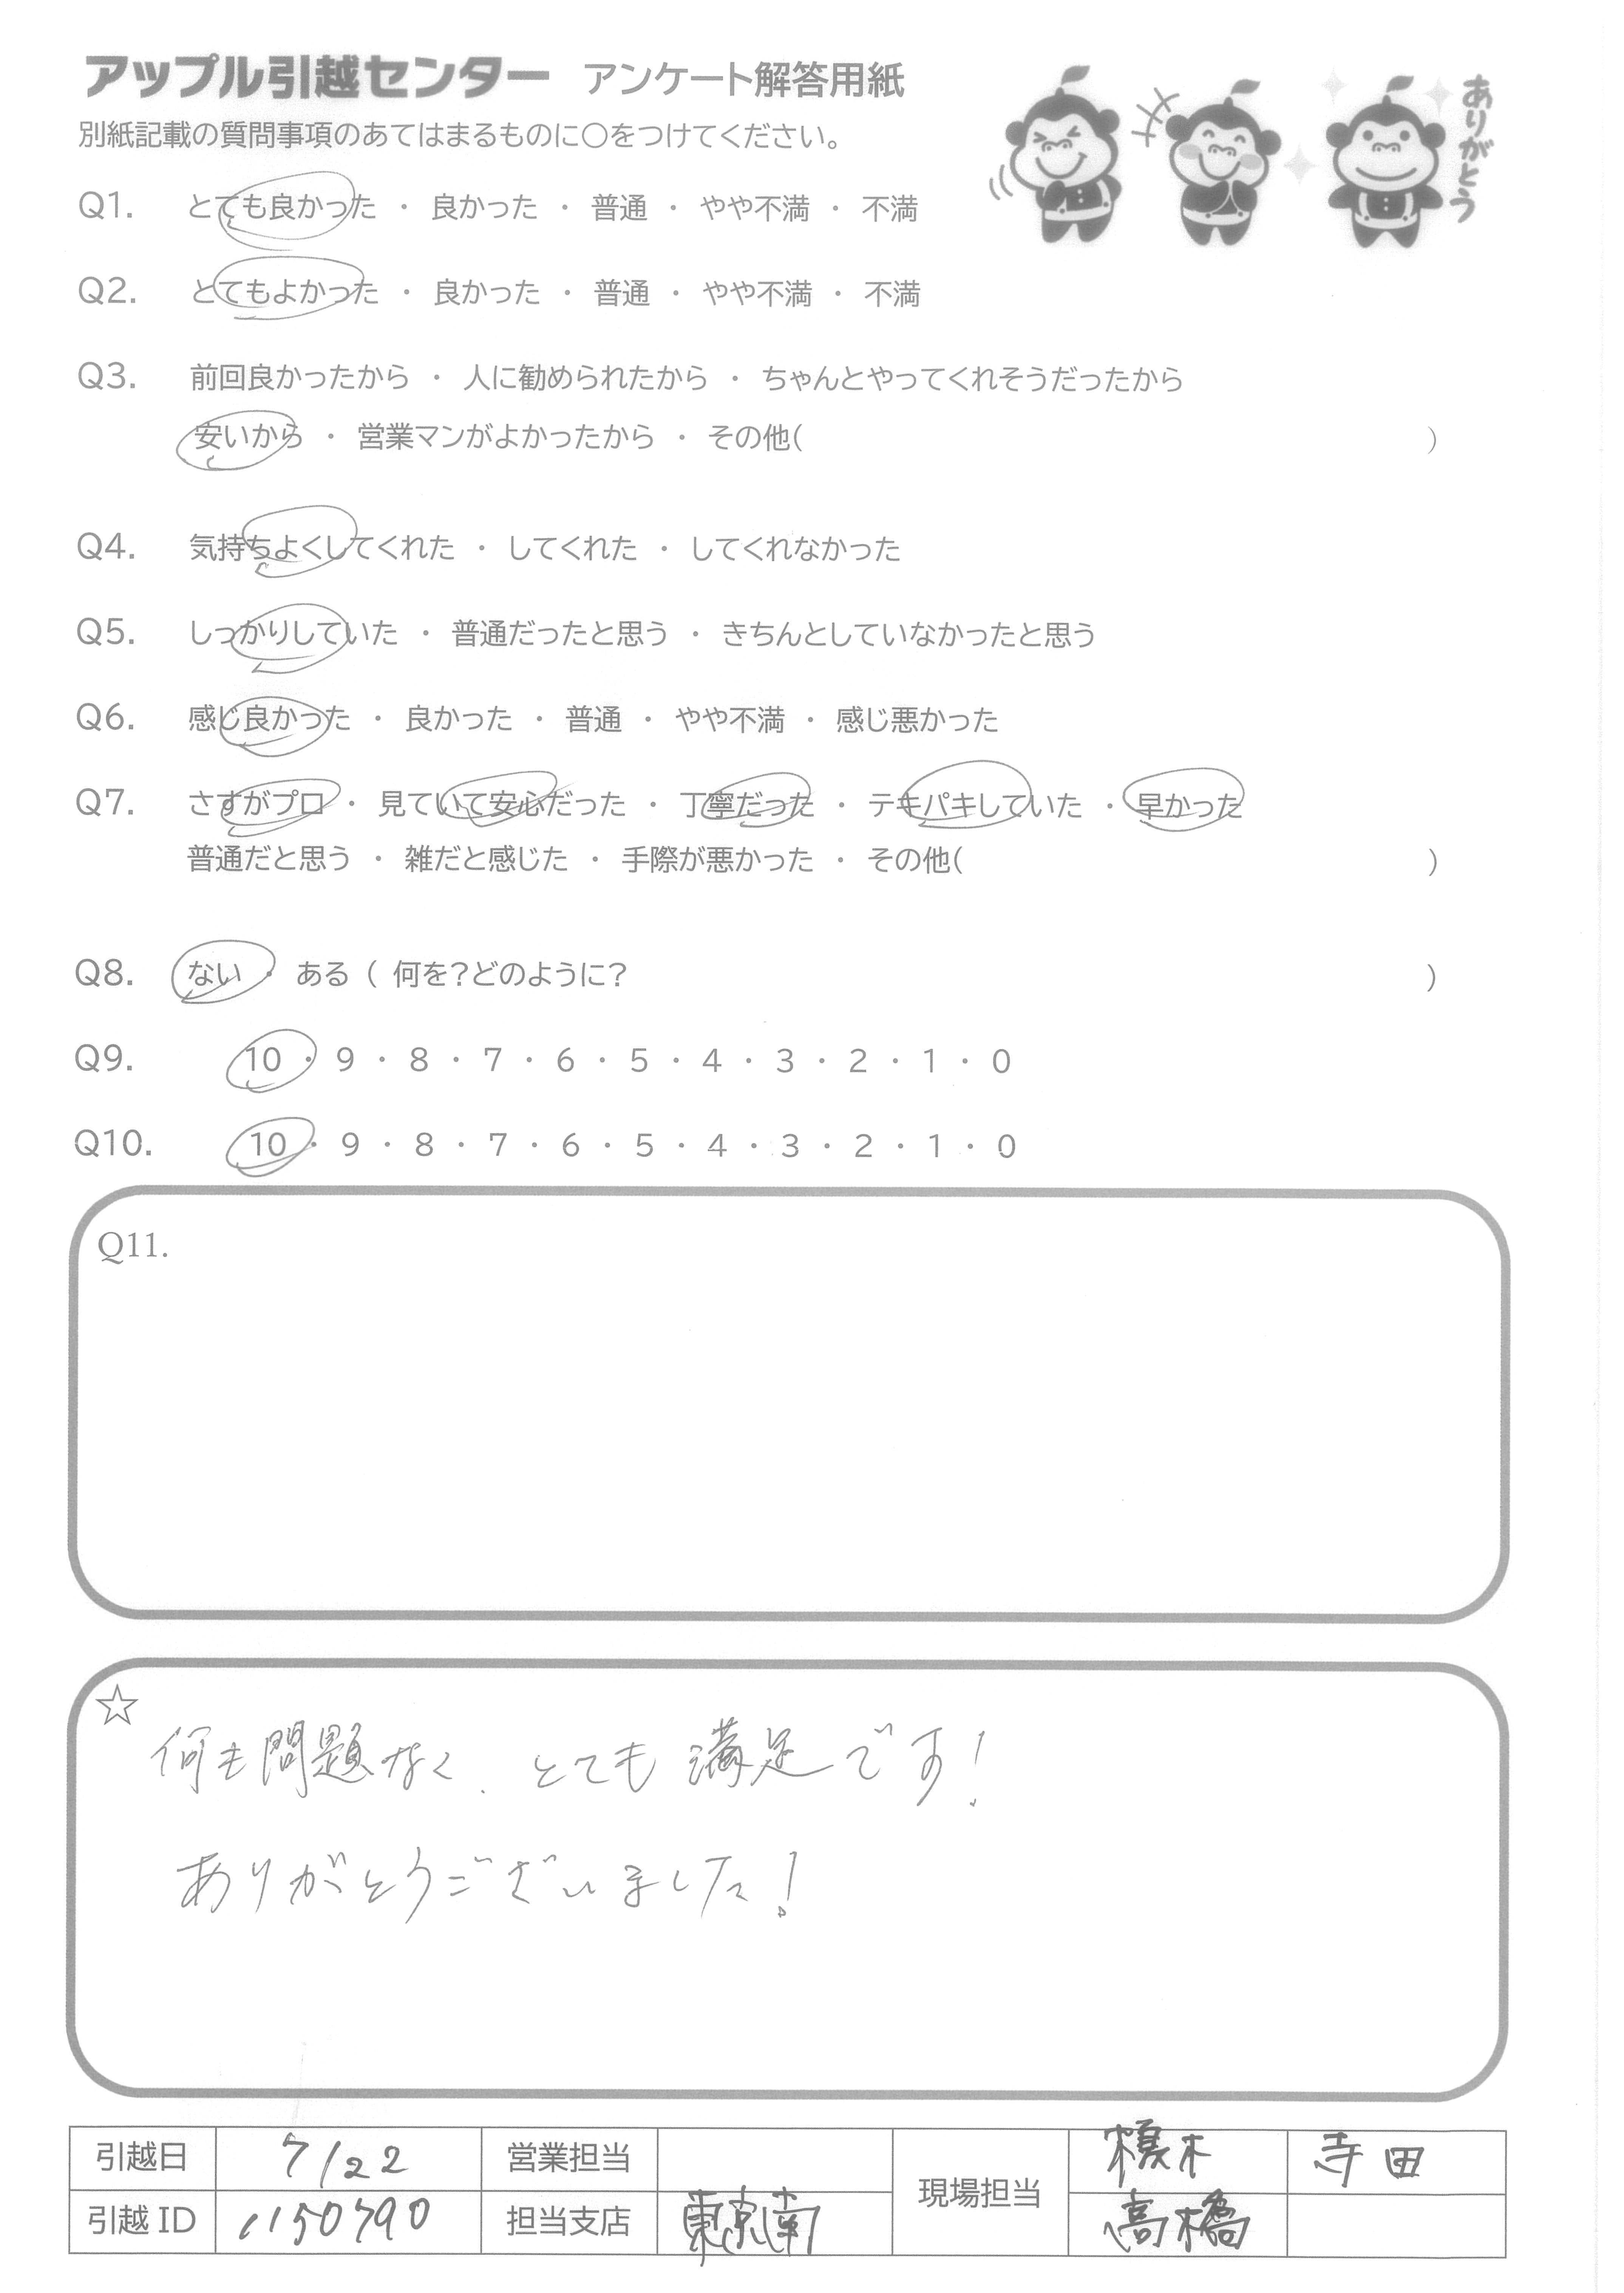 アップル引越センター アンケート解答用紙
別紙記載の質問事項のあてはまるものに〇をつけてください。
ありがとう
Q1. とても良かった ・ 良かった ・ 普通 ・ やや不満 ・ 不満
Q2. とてもよかった ・ 良かった ・ 普通 ・ やや不満 ・ 不満
Q3. 前回良かったから ・ 人に勧められたから ・ ちゃんとやってくれそうだったから
安いから ・ 営業マンがよかったから ・ その他( )
Q4. 気持ちよくしてくれた ・ してくれた ・ してくれなかった
Q5. しっかりしていた ・ 普通だったと思う ・ きちんとしていなかったと思う
Q6. 感じ良かった ・ 良かった ・ 普通 ・ やや不満 ・ 感じ悪かった
Q7. さすがプロ ・ 見ていて安心だった ・ 丁寧だった ・ テキパキしていた ・ 早かった
普通だと思う ・ 雑だと感じた ・ 手際が悪かった ・ その他( )
Q8. ない ・ ある ( 何を?どのように? )
Q9. 10 ・ 9 ・ 8 ・ 7 ・ 6 ・ 5 ・ 4 ・ 3 ・ 2 ・ 1 ・ 0
Q10. 10 ・ 9 ・ 8 ・ 7 ・ 6 ・ 5 ・ 4 ・ 3 ・ 2 ・ 1 ・ 0
Q11.
☆
何も問題なく、とても満足です!
ありがとうございました!
引越日 7/22 営業担当 現場担当 寺田
引越ID 1150790 担当支店 東京南 高橋